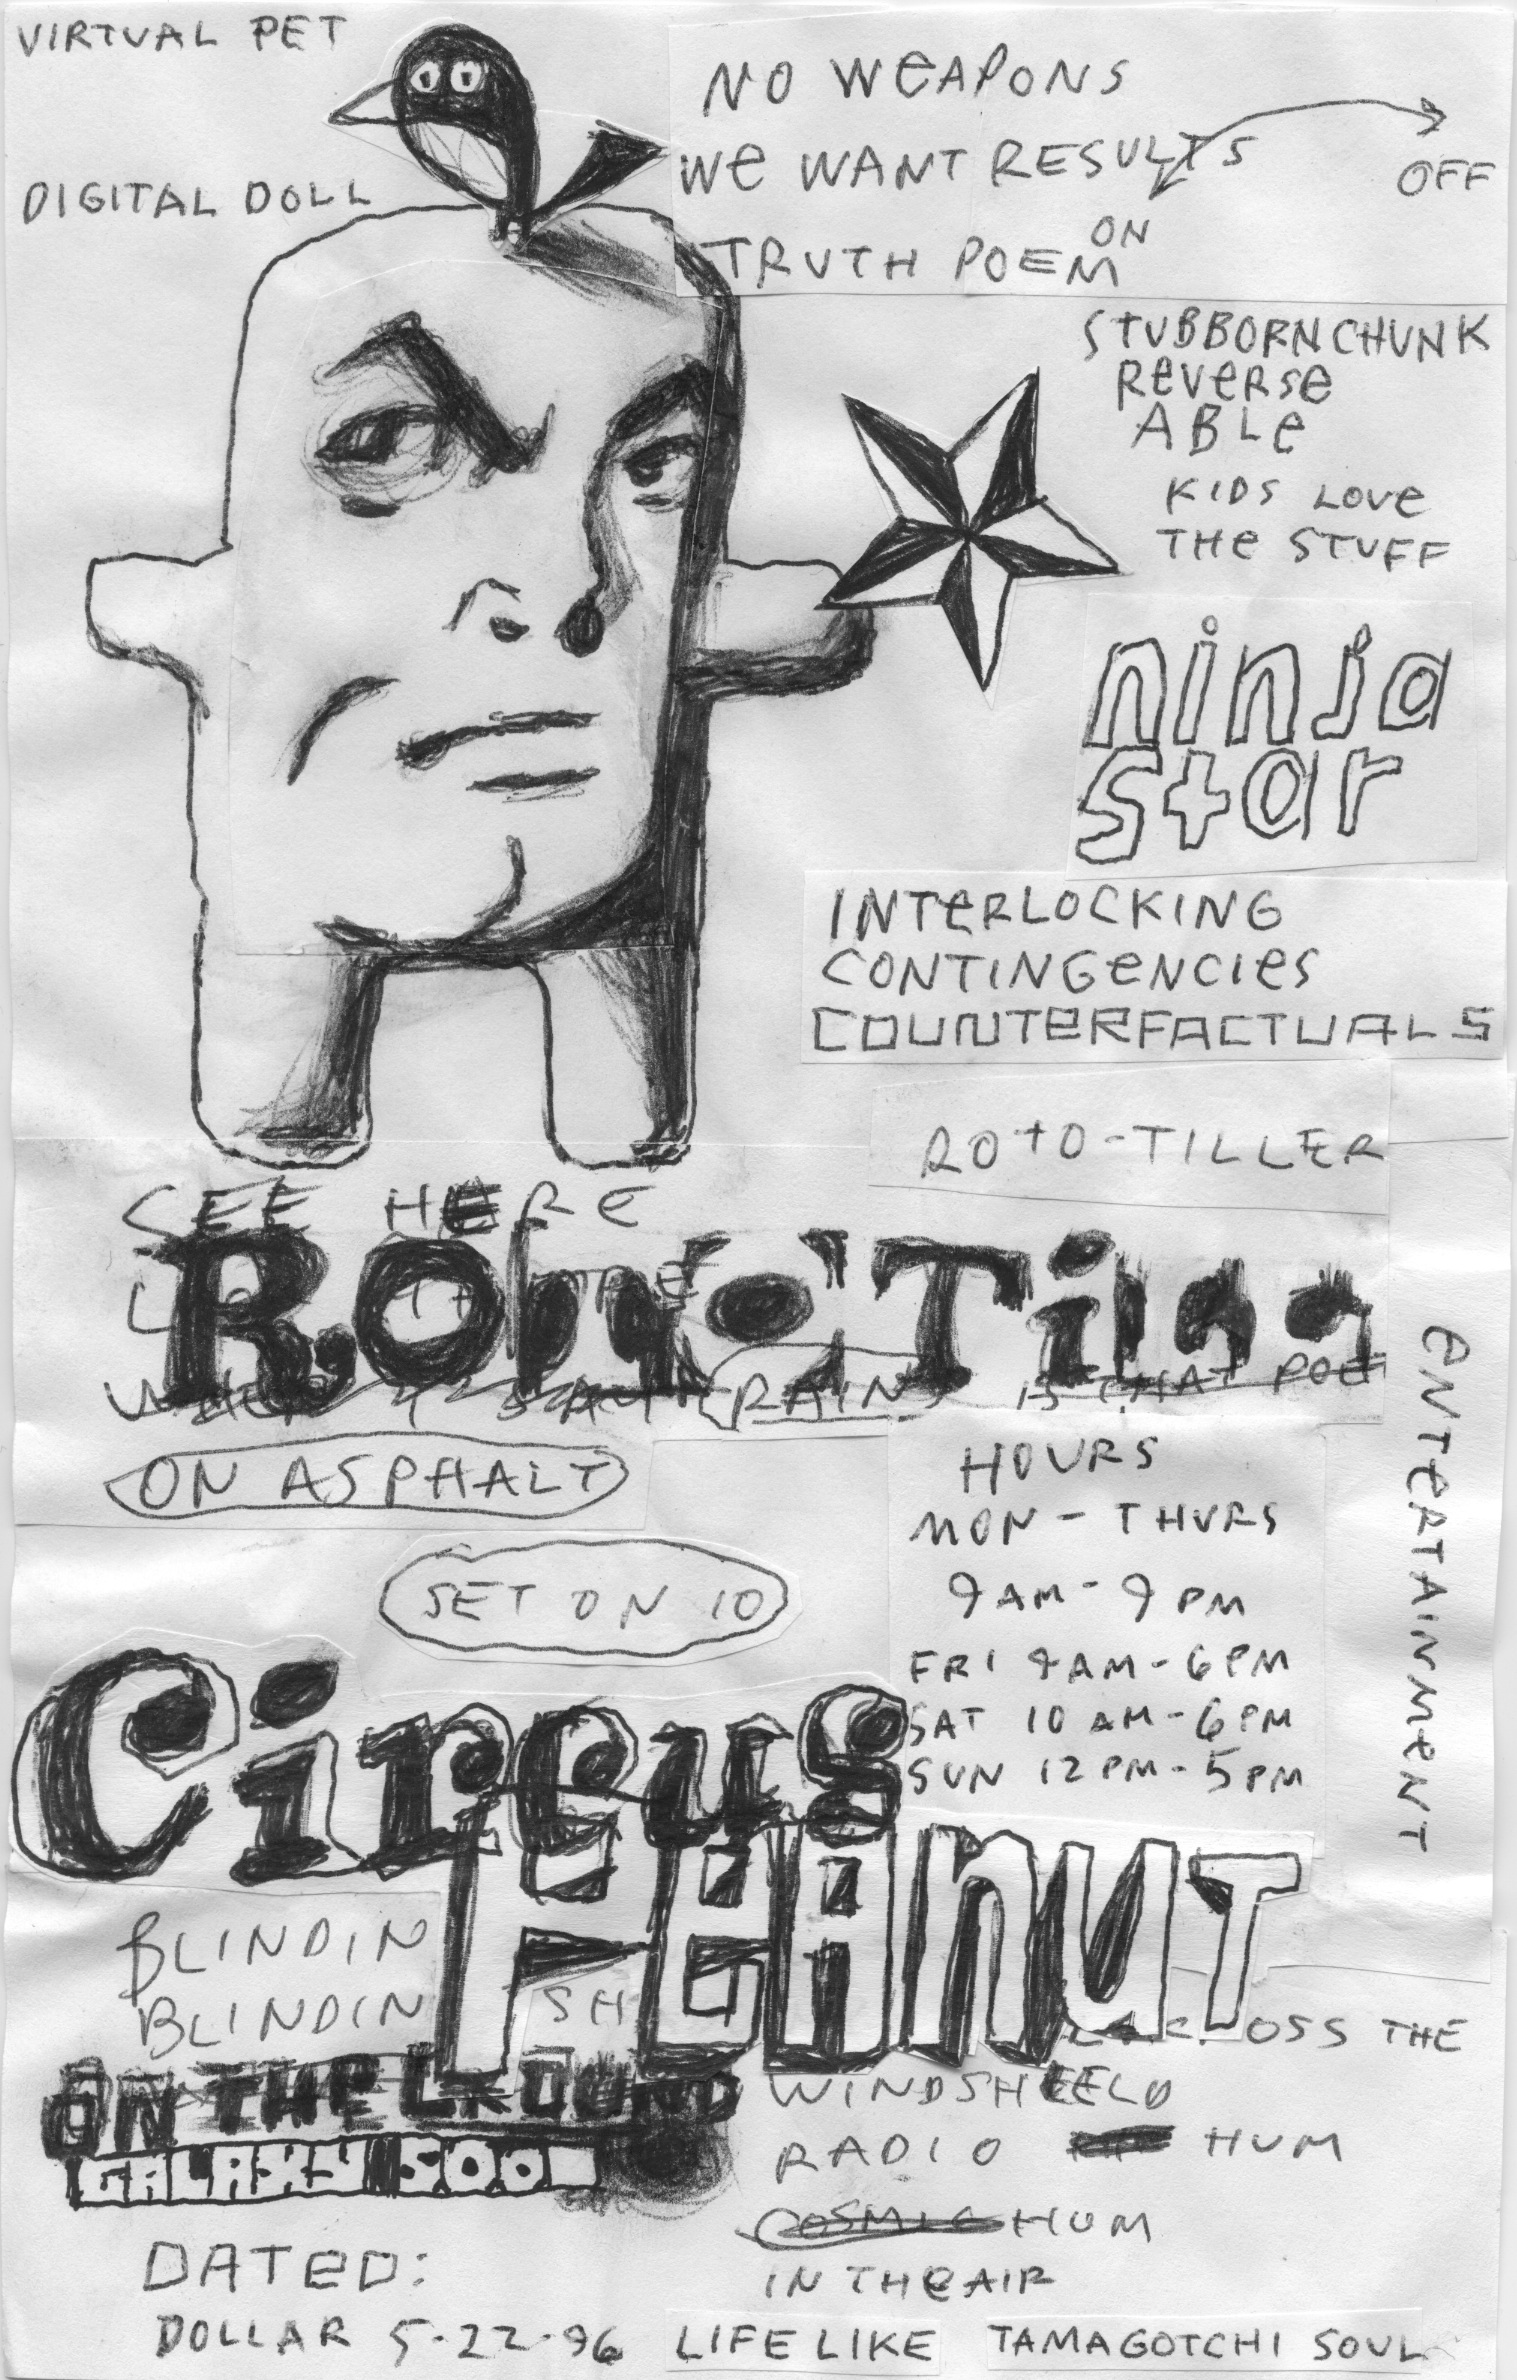 VIRTUAL PET
DIGITAL DOLL
NO WEAPONS
WE WANT RESULTS
OFF
ON
TRUTH POEM
STUBBORN CHUNK
REVERSE
ABLE
KIDS LOVE
THE STUFF
ninja
star
INTERLOCKING
CONTINGENCIES
COUNTERFACTUALS
ROTO-TILLER
SEE HERE
RAIN
IS THAT
ON ASPHALT
ENTERTAINMENT
HOURS
MON - THURS
9AM - 9PM
FRI 9AM - 6PM
SAT 10AM - 6PM
SUN 12PM - 5PM
SET ON 10
Circus
BLINDIN
BLINDIN
SH
OSS THE
WINDSHEELD
RADIO HUM
COSMIC HUM
IN THE AIR
ON THE
GALAXY 500
DATED:
DOLLAR 5-22-96
LIFE LIKE
TAMAGOTCHI SOUL